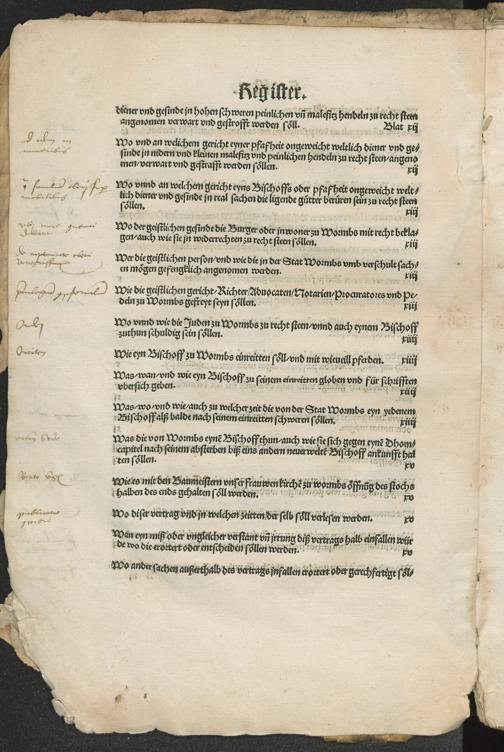 Register.
diener vnd gesinde in hohen schweren peinlichen vñ malefitz hendeln zu recht steen
angenomen verwart vnd gestrofft werden söll. Blat xij
Wo vnd an welchem gericht eyner pfafheit ongeweicht weltlich diener vnd ge-
sinde in nidern vnd kleinen malefitz vnd peinlichen hendeln zu recht steen/angeno
men/verwart vnd gestrafft werden söllen. xij
Wo vnnd an welchem gericht eyns Bischoffs oder pfafheit ongeweicht welt-
lich diener vnd gesinde jn real sachen die ligende gütter berüren sein zu recht steen
söllen. xiij
Wo der geistlichen gesinde die Burger oder jnwoner zu Wormbs mit recht bekla-
gen/auch wie sie in widerrechten zu recht steen söllen. xiij
Wer die geistlichen person/vnd wie die in der Stat Wormbs vmb verschult sach-
en mögen gefengklich angenomen werden. xiij
Wie die geistlichen gericht/Richter/Aduocaten/Notarien/Procuratores vnd Pe-
deln zu Wormbs gefreyt seyn söllen. xiij
Wo vnnd wie die Juden zu Wormbs zu recht steen/vnnd auch eynem Bischoff
zuthun schuldig sein söllen. xiiij
Wie eyn Bischoff zu Wormbs einreitten söll/vnd mit wieuell pferden. xiiij
Was/wan/vnd wie eyn Bischoff zu seinem einreitten globen vnd für schrifften
vbersich geben. xiiij
Was/wo/vnd wie/auch zu welcher zeit die von der Stat Wormbs eyn yedenem
Bischoff alß balde nach seinem einreitten schweren söllen. xiiij
Was die von Wormbs eynē Bischoff thun/auch wie sie sich gegen eynē Dhom
capitel nach seinem absterben biß eins andern neuwerwelt Bischoff ankunfft hal
ten söllen. xv
Wie es mit den Baumeistern vnser frauwen kirchē zu wormbs öffnūg des stocks
halben des ends gehalten söll werden. xv
Wo diser vertrag vnd jn welchen zeitten/der selb söll verlesen werden. xv
Wan eyn miß oder vngleicher verstant vñ jrrung diß vertrags halb einfallen wür
de wo die erörtert oder entscheiden söllen werden. xv
Wo ander sachen ausserthalb des vertrags jnfallen erörtert oder gerechfertigt söl-